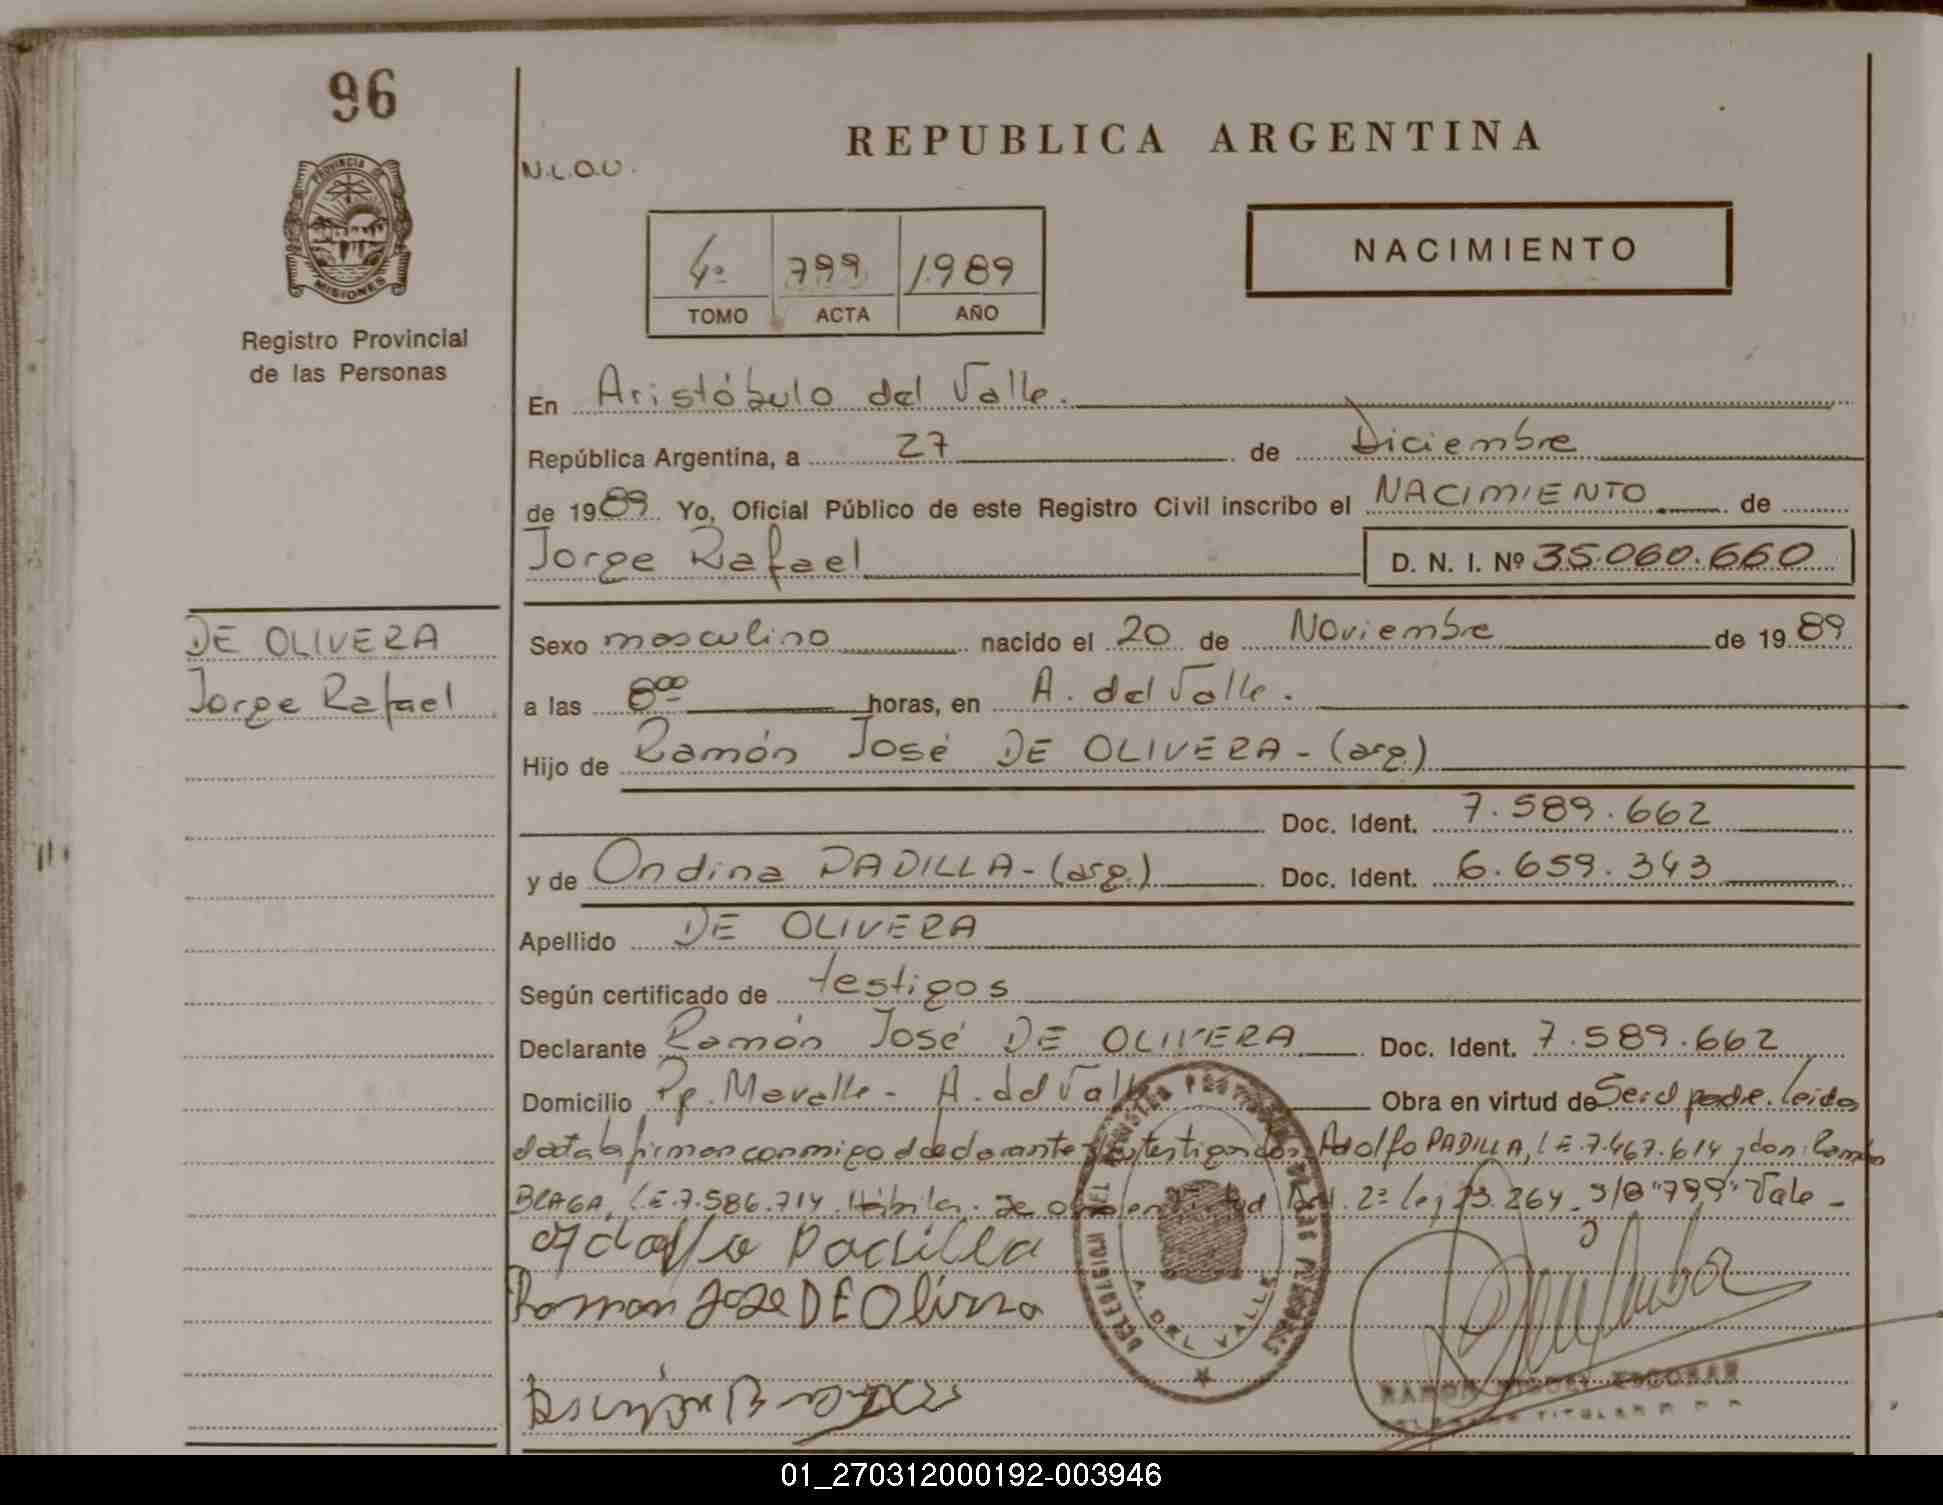 96
PROVINCIA
MISIONES
Registro Provincial
de las Personas
REPUBLICA ARGENTINA
N.L.O.U.
4º 799 1989
TOMO ACTA AÑO
NACIMIENTO
En Aristóbulo del Valle.
República Argentina, a 27 de Diciembre
de 1989 Yo, Oficial Público de este Registro Civil inscribo el NACIMIENTO de
Jorge Rafael D. N. I. Nº 35.060.660
DE OLIVERA
Jorge Rafael
Sexo masculino nacido el 20 de Noviembre de 1989
a las 8ºº horas, en A. del Valle.
Hijo de Ramón José DE OLIVERA - (arg.)
Doc. Ident. 7.589.662
y de Ondina PADILLA - (arg.) Doc. Ident. 6.659.343
Apellido DE OLIVERA
Según certificado de testigos
Declarante Ramón José DE OLIVERA Doc. Ident. 7.589.662
Domicilio Pje. - A. del Valle Obra en virtud de Ser el padre. Leida
el acta la firman conmigo el declarante y los testigos don Adolfo PADILLA, L.E. 7.467.614 y don Ramón
L.E. 7.586.714. Hábiles. Se Art. 2º ley 23.264. S/B "799" Vale -
Adolfo Padilla
Ramon Jose DE Olivera
A. DEL VALLE
RAMON MIGUEL ESCOBAR
01_270312000192-003946